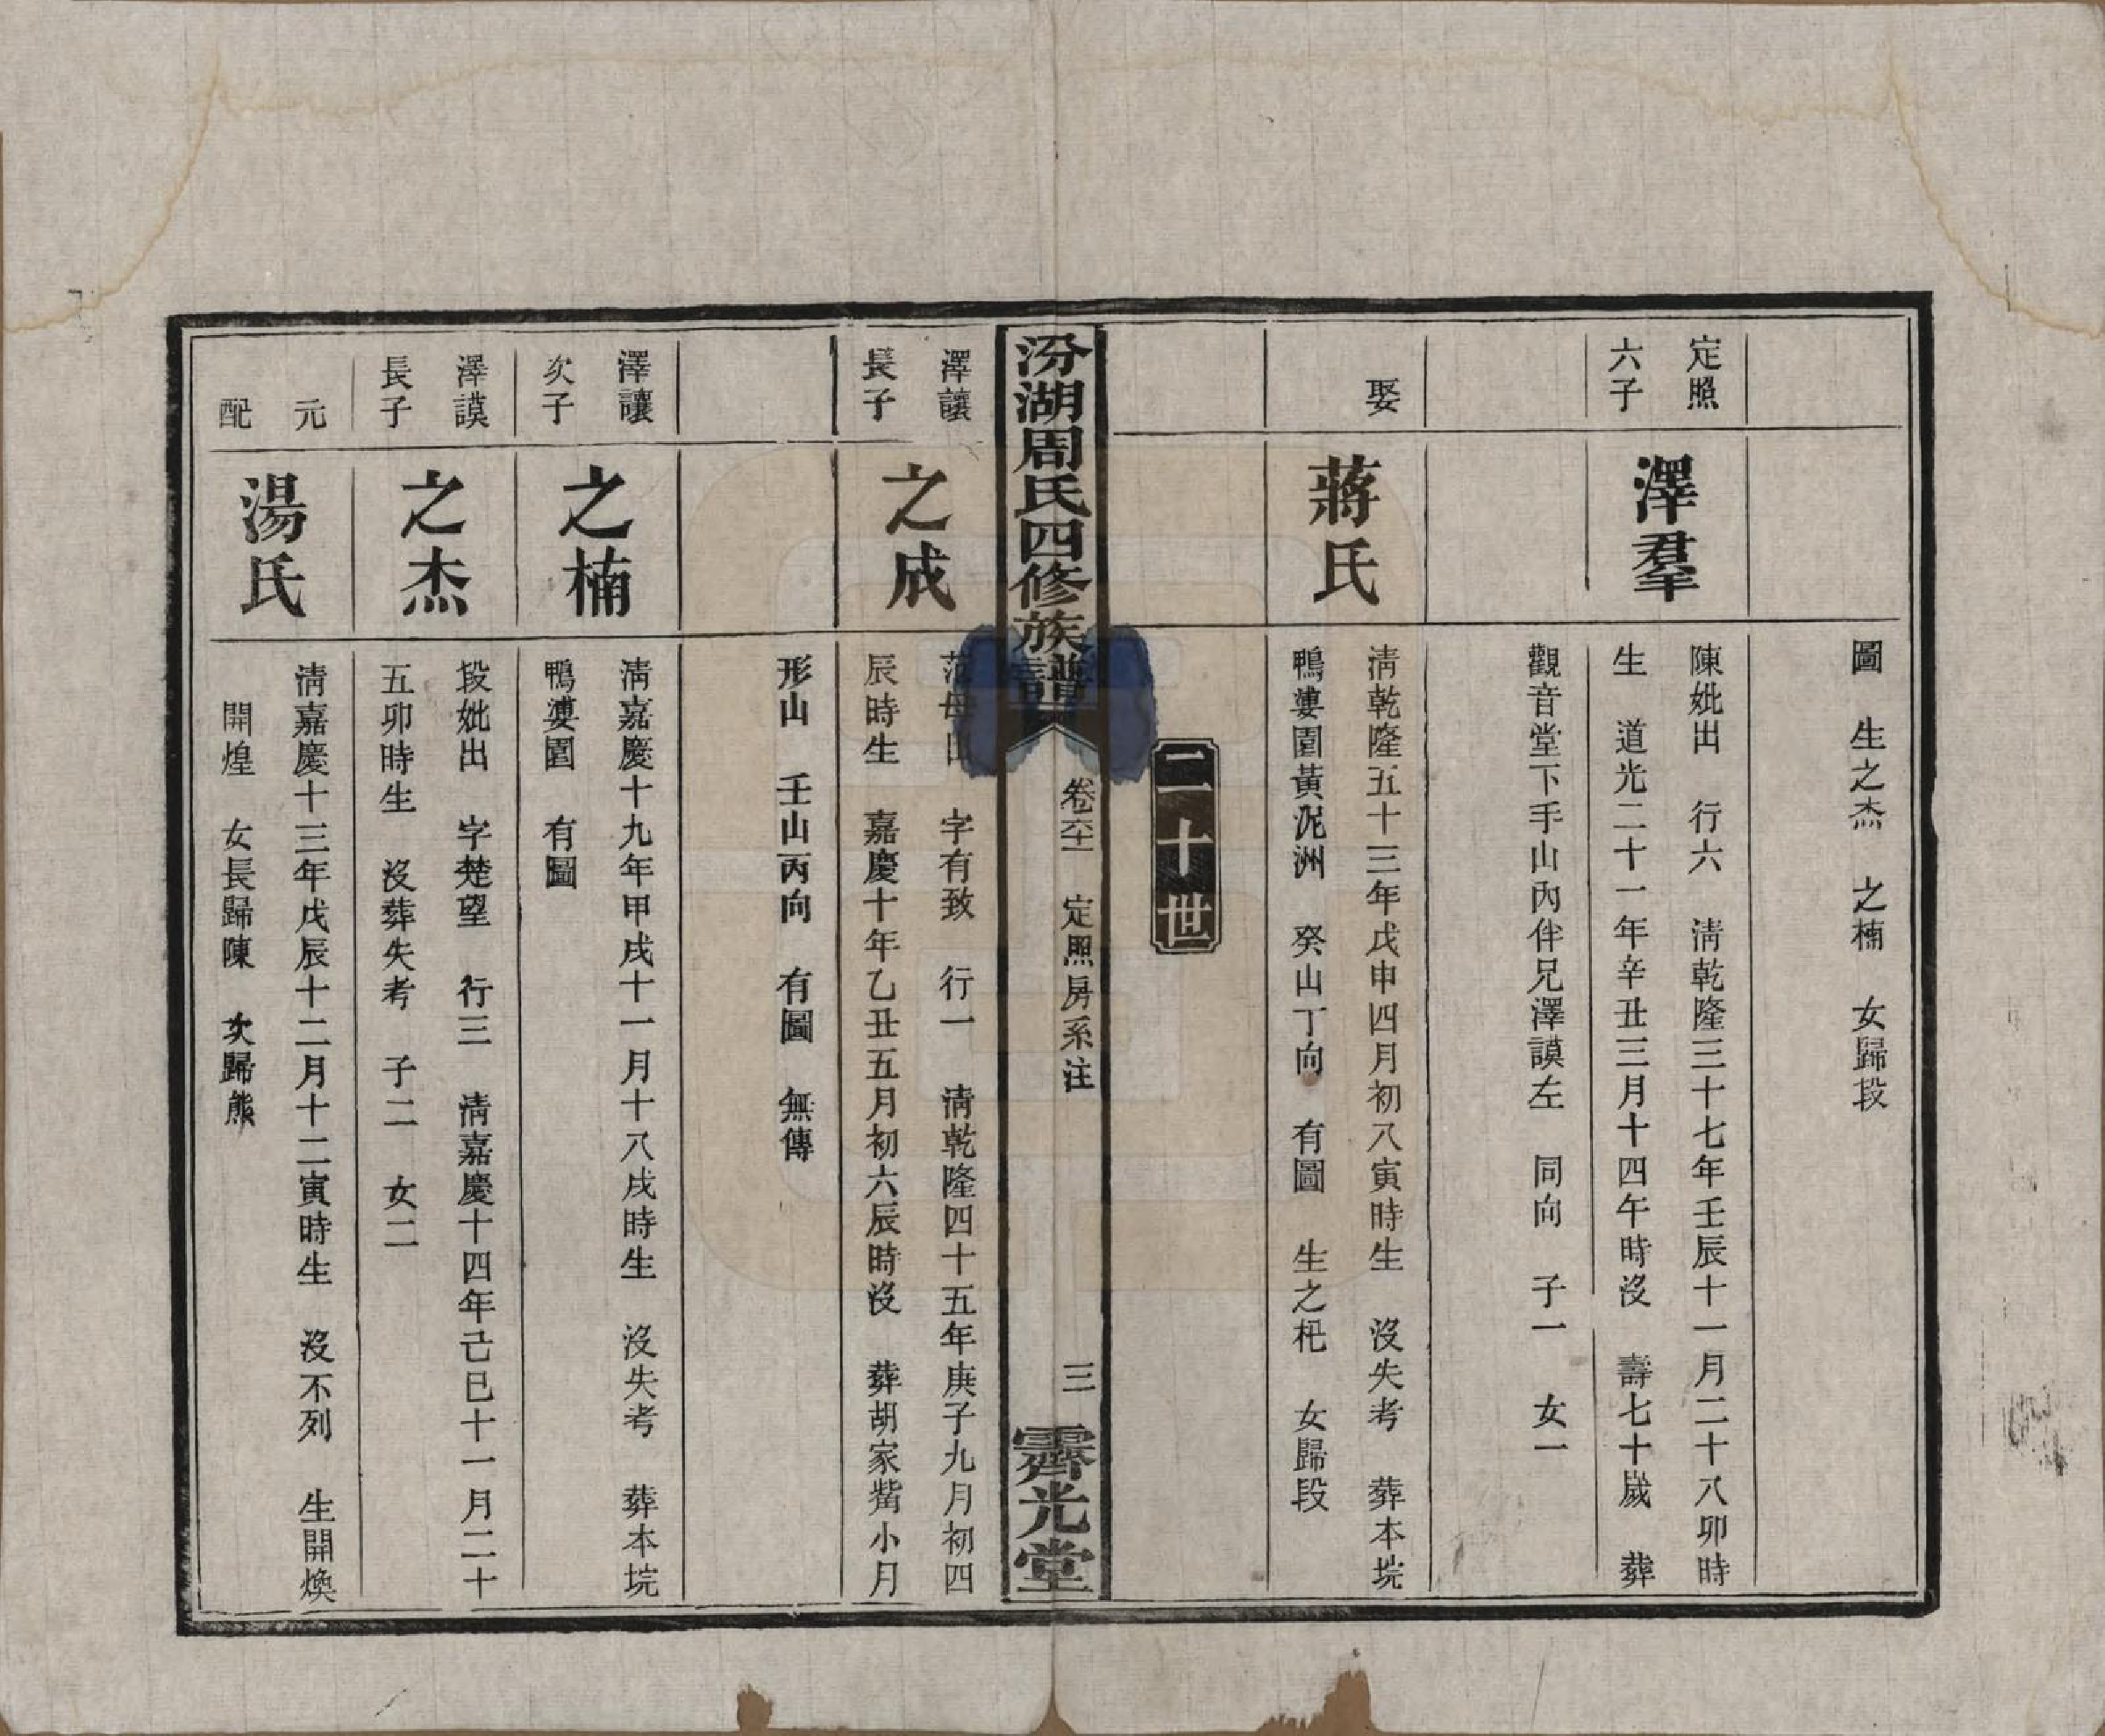 圖 生之杰 之楠 女歸段
定照
六子
澤羣
陳妣出 行六 淸乾隆三十七年壬辰十一月二十八卯時
生 道光二十一年辛丑三月十四午時沒 壽七十歲 葬
觀音堂下手山內伴兄澤謨左 同向 子一 女一
娶
蔣氏
淸乾隆五十三年戊申四月初八寅時生 沒失考 葬本垸
鴨婁園黃泥洲 癸山丁向 有圖 生之杞 女歸段
二十世
汾湖周氏四修族譜
卷六十一 定照房系注
三
霽光堂
澤讓
長子
之成
范母出 字有致 行一 淸乾隆四十五年庚子九月初四
辰時生 嘉慶十年乙丑五月初六辰時沒 葬胡家觜小月
形山 壬山丙向 有圖 無傳
澤讓
次子
之楠
淸嘉慶十九年甲戌十一月十八戌時生 沒失考 葬本垸
鴨婁園 有圖
澤謨
長子
之杰
段妣出 字楚望 行三 淸嘉慶十四年己巳十一月二十
五卯時生 沒葬失考 子二 女二
元
配
湯氏
淸嘉慶十三年戊辰十二月十二寅時生 沒不列 生開煥
開煌 女長歸陳 次歸熊